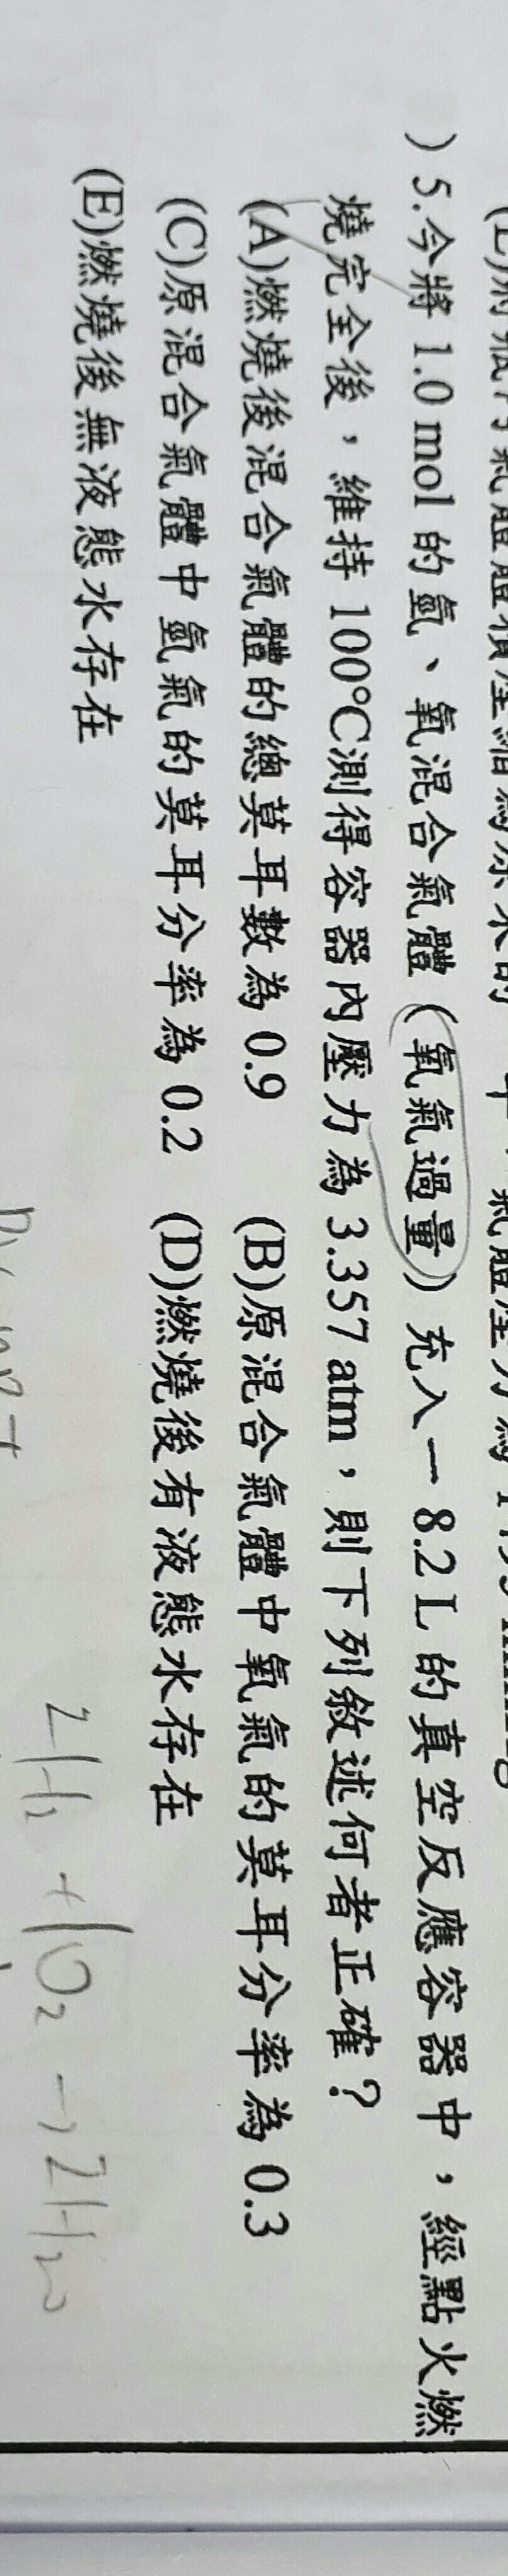 )5.今將 1.0 mol 的氫、氧混合氣體（氧氣過量）充入一 8.2 L 的真空反應容器中，經點火燃
燒完全後，維持 100℃測得容器內壓力為 3.357 atm，則下列敘述何者正確？
(A)燃燒後混合氣體的總莫耳數為 0.9 (B)原混合氣體中氧氣的莫耳分率為 0.3
(C)原混合氣體中氫氣的莫耳分率為 0.2 (D)燃燒後有液態水存在
(E)燃燒後無液態水存在
2H₂ + 1O₂ → 2H₂O